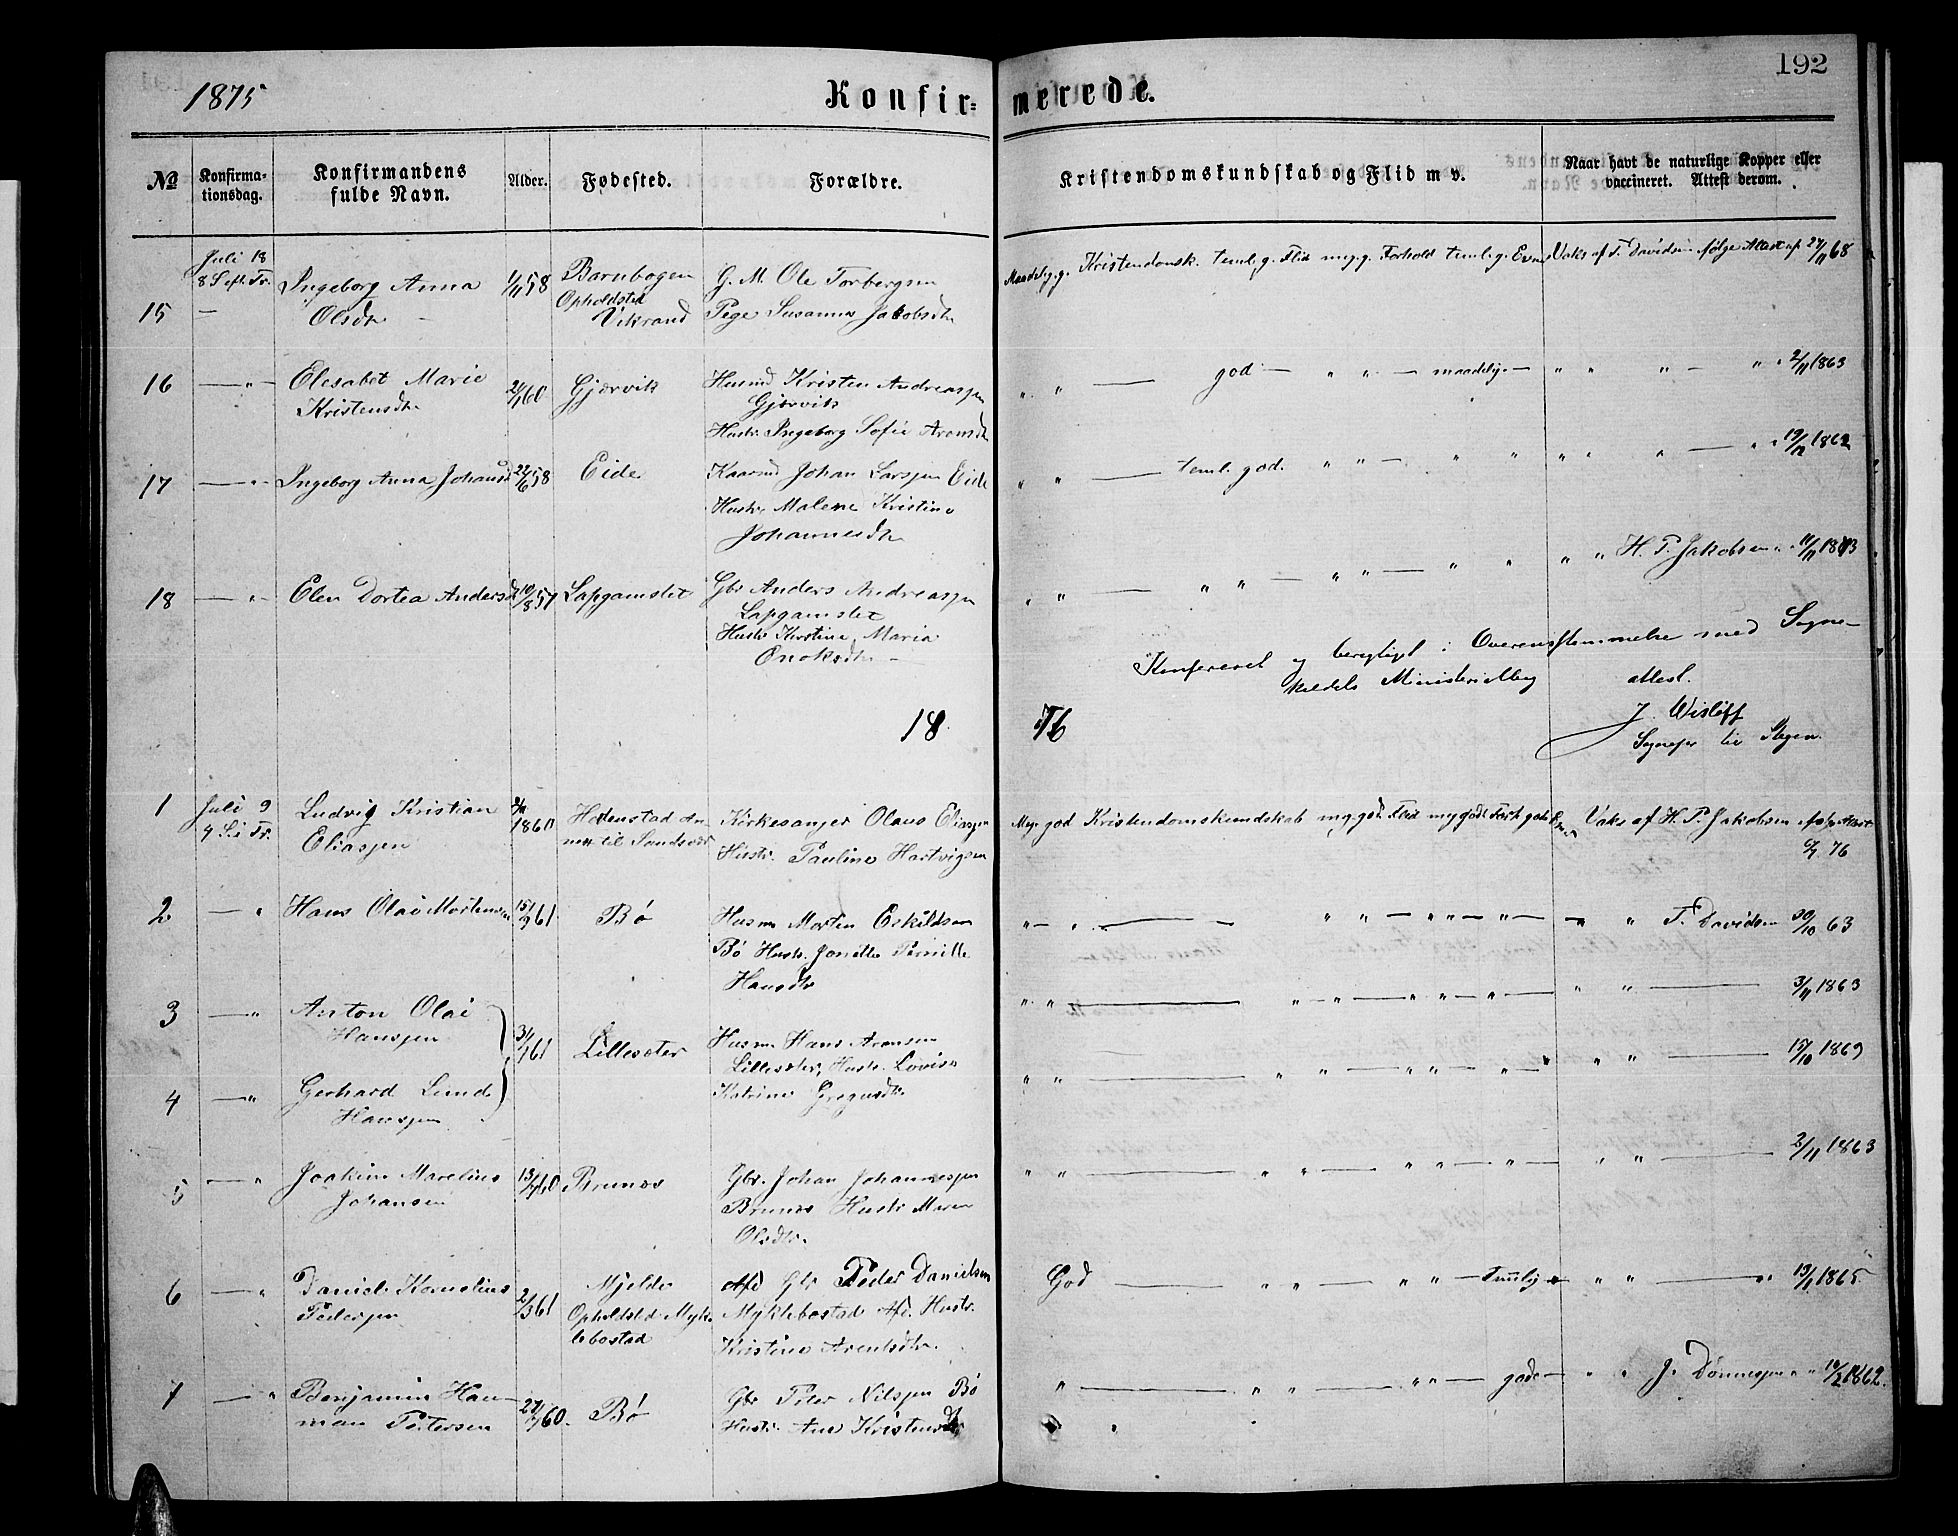 192
1875
Konfir=
merede.
No
Konfirma-
tionsdag.
Konfirmandens
fulde Navn.
Alder.
Fødested.
Forældre.
Kristendomskundskab og Flid m v.
Naar havt de naturlige Kopper eller
vaccineret. Attest derom.
15
Juli 18
8 S. eft. Tr.
Ingeborg Anna
Olsdtr
1/11 58
Barnbogen
Opholdsted
Vikrand
G. M. Ole Torbergsen
Pige Susanna Jakobsdtr
Maadelig g. Kristendomsk. teml. g. Flid myg. Forhold teml. g. Evner
Vaks af T. Davidsen ifølge Attest af 27/11 68
16
Elesabet Marie
Kristensdtr
Gjærvik
Husmd Kristen Andreassen
Gjærvik
Hustr. Ingeborg Sofie Arensdtr
" " — god — " " — maadelige — " " " — " " 2/11 1863
17
Ingeborg Anna Johansd
22/6 58
Eide
Kaarmd Johan Larssen Eide
Hustr. Malene Kristine
Johannesdtr
" " — teml. god. " " — " " " " " — " " 19/12 1862
18
Elen Dortea Andersd
10/8 57
Lapgamslet
Gbr Anders Andreassen
Lapgamslet
Hustr Kirstine Maria
Enoksdtr
" " — " " — " " — " " " " H. P. Jakobsen " " 11/11 1873
Konfereret og berigtiget i Overensstemmelse med Sogne-
kaldets Ministerialbog attest.
J. Wisløff
Sognepr til Stegen.
18 76
1
Juli 9
4 S. e Tr.
Ludvig Kristian
Eliassen
1860
Hedenstad An-
nex til Sandsvær
Kirkesanger Olaus Eliassen
Hustr. Pauline Hartvigsen
Meg. god Kristendomskundskab myg. godt Flid myg godt Forh gode Evner
Vaks af H. P. Jakobsen ifølge Attest
76
2
Hans Olai Mortensen
15/9 61
Bø
Husm Morten Eskildsen
Bø Hustr. Jonette Pernille
Hansdtr
" — " — " " — " — " — " — " " T. Davidsen 30/10 63
3
Anton Olai
Hanssen
3/1 61
Lillesæter
Husm Hans Aronsen
Lillesæter, Hustr. Lovise
Katrine Gregusdtr.
" " — " — " — " " — " — " " — 3/11 1863
4
Gerhard Lund
Hanssen
" " — " " — " " — " — " " " — 15/10 1869
5
Joakim Marelius
Johansen
Brunæs
Gbr. Johan Johannessen
Brunæs Hustr Maren
Olsdtr.
" " — " " — " " — " — " " — 2/11 1863
6
Daniel Kornelius
Pedersen
2/3 61
Mjelde
Opholdsted Myk-
lebostad
Afd Gbr Peder Danielsen
Myklebostad Afd. Hustr.
Kristine Arentsdtr.
God — " " — " " — Temlig " " " — " 13/1 1865
7
Benjamin Han-
man Petersen
Bø
Gbr Peter Nilssen Bø
Hustr. Ane Kristensdtr
" — " " — " " — gode — " " J. Dønnessen " " 1862.